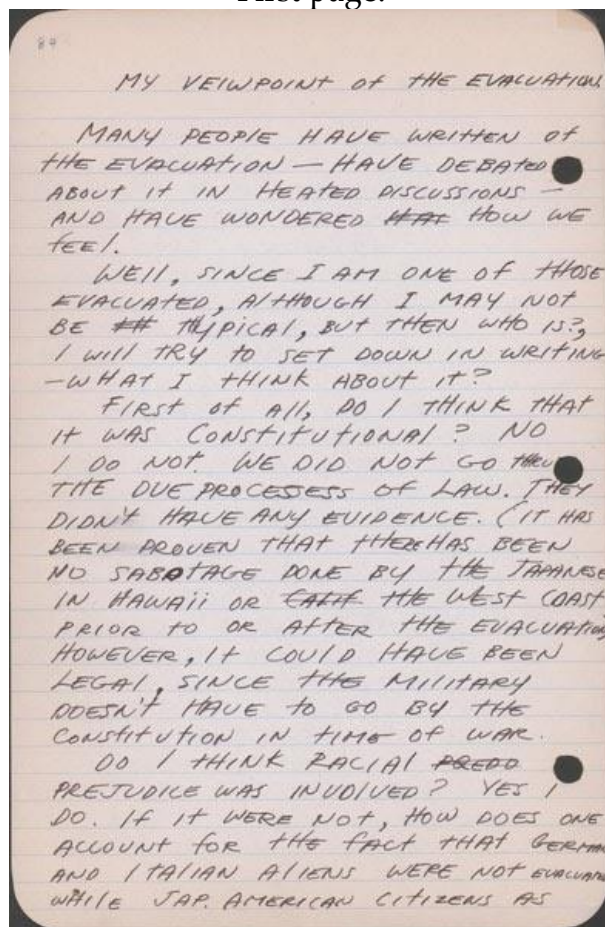 First page.
84
MY VEIWPOINT of tHE EVACUATION
MANY PEOPlE HAVE WRITTEN of
tHE EVACUATION — HAVE DEBATED
ABOUT It IN HEATED DISCUSSIONS —
AND HAVE WONDERED HOW WE
fEEl.
WEll, SINCE I AM ONE OF tHOSE
EVACUATED, AltHOUGH I MAY NOt
BE TYPICAl, BUT tHEN WHO IS?,
I Will TRY to SET DOWN IN WRItING
—WHAT I tHINK ABOUT It?
FIRSt of All, DO I THINK tHAt
It WAS CONStItUtIONAl? NO
I DO NOT. WE DID NOT GO tHRU
THE DUE PROCESESS OF LAW. THEY
DIDN'T HAVE ANY EVIDENCE. (IT HAS
BEEN PROVEN tHAT tHERE HAS BEEN
NO SABOTAGE DONE BY tHE JAPANESE
IN HAWAii OR CAlIf tHE WESt COASt
PRIOR to OR AftER tHE EVACUATION)
HOWEVER, It COUlD HAVE BEEN
LEGAl, SINCE tHE MIlItARY
DOESN'T HAVE to GO BY tHE
CONStItUtION IN tIME OF WAR.
DO I tHINK RACIAl PREDD
PREJUDICE WAS INVOlVED? YES I
DO. If It WERE NOt, HOW DOES ONE
ACCOUNT fOR tHE fACt tHAT GERMAN
AND ItAlIAN AlIENS WERE NOt EVACUATED
WHIlE JAP. AMERICAN CItIZENS AS